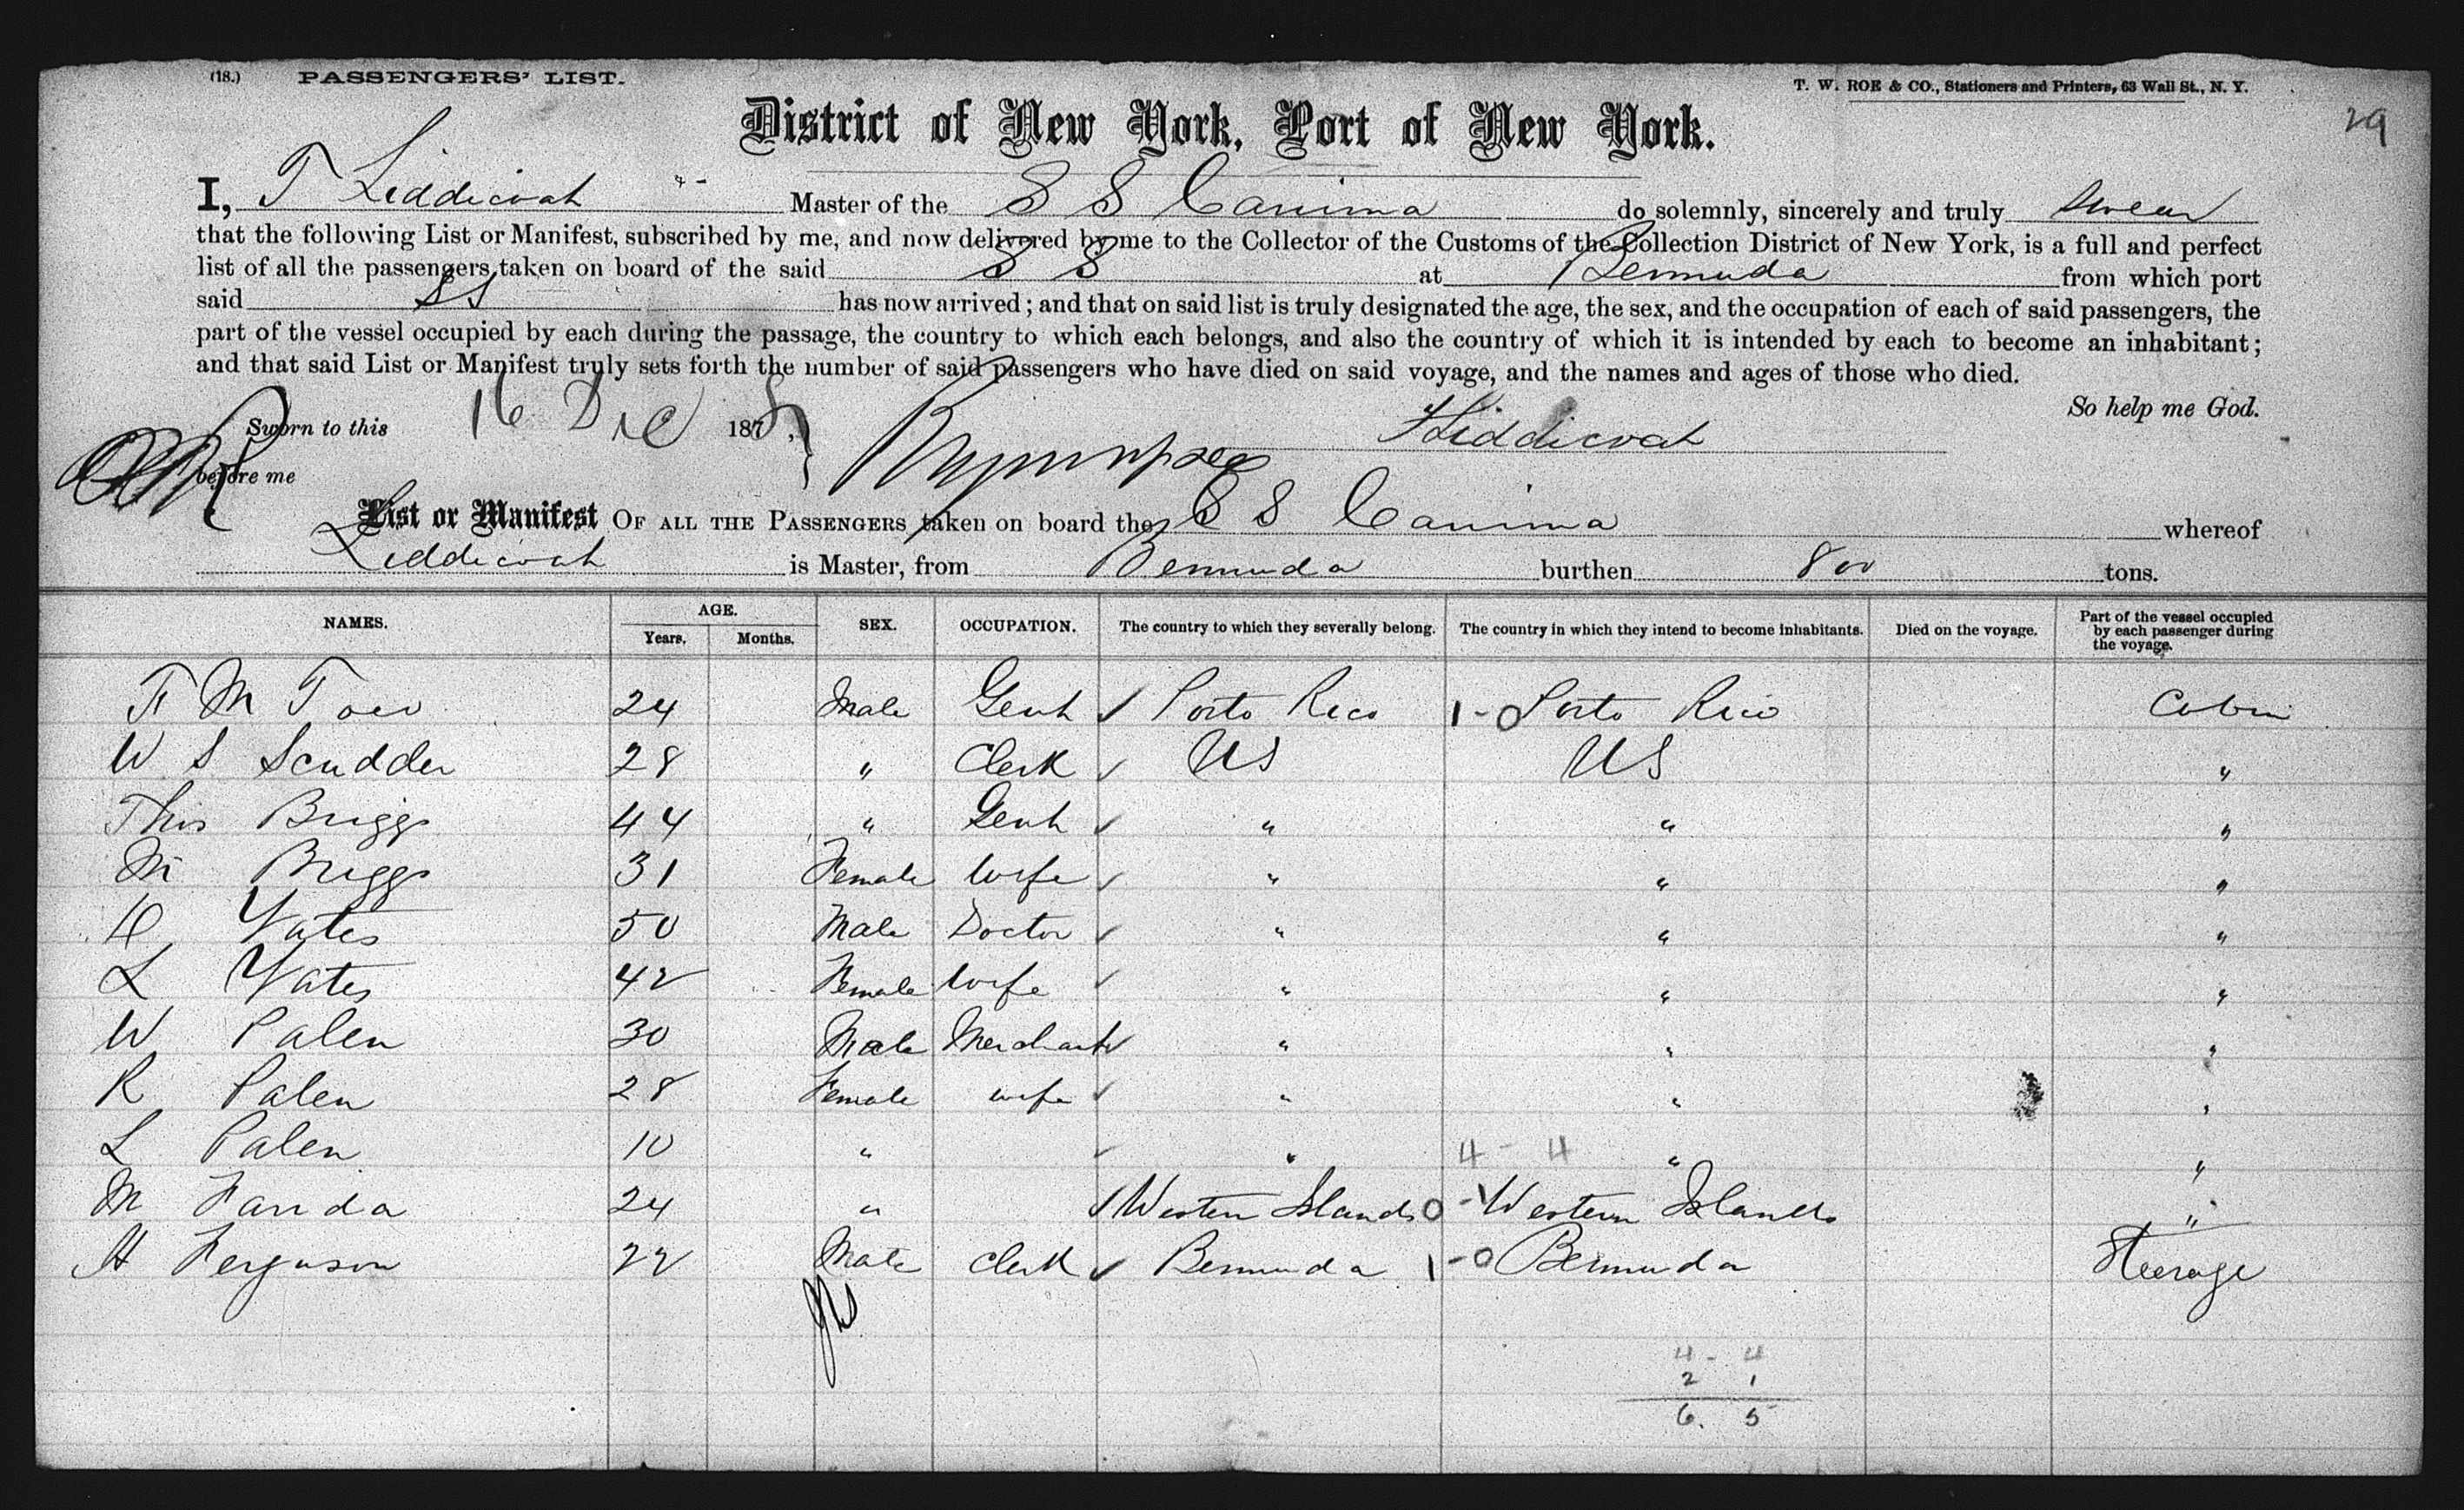 (18.) PASSENGERS' LIST.
T. W. ROE & CO., Stationers and Printers, 63 Wall St., N. Y.
29
District of New York, Port of New York.
I, T Liddicoat Master of the S S Canima do solemnly, sincerely and truly swear
that the following List or Manifest, subscribed by me, and now delivered by me to the Collector of the Customs of the Collection District of New York, is a full and perfect
list of all the passengers taken on board of the said S S at Bermuda from which port
said SS has now arrived; and that on said list is truly designated the age, the sex, and the occupation of each of said passengers, the
part of the vessel occupied by each during the passage, the country to which each belongs, and also the country of which it is intended by each to become an inhabitant;
and that said List or Manifest truly sets forth the number of said passengers who have died on said voyage, and the names and ages of those who died.
So help me God.
Sworn to this 16 Dec 1878, T Liddicoat
before me
List or Manifest OF ALL THE PASSENGERS taken on board the S S Canima whereof
Liddicoat is Master, from Bermuda burthen 800 tons.
NAMES. AGE. Years. Months. SEX. OCCUPATION. The country to which they severally belong. The country in which they intend to become inhabitants. Died on the voyage. Part of the vessel occupied by each passenger during the voyage.
F M 24 Male Gent ✓ Porto Rico 1-0 Porto Rico Cabin
W S Scudder 28 " Clerk ✓ US US "
Thos Briggs 44 " Gent ✓ " " "
M Briggs 31 Female wife ✓ " " "
Yates 50 Male Doctor ✓ " " "
L Yates 42 Female wife ✓ " " "
W Palen 30 Male Merchant ✓ " " "
R Palen 28 Female wife ✓ " " "
L Palen 10 " ✓ " 4 - 4 " "
M 24 " ✓ Western Islands 0 - 1 Western Islands "
H Ferguson 22 Male Clerk ✓ Bermuda 1-0 Bermuda Steerage
4 - 4
2 1
6. 5